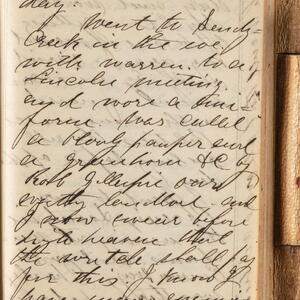 day.
Went to Sandy
Creek in the eve
with Warren to a
Lincoln meeting
and wore a uni-
form. Was called
a bloody pauper and
a greenhorn &c by
Rob Gillispie our
landlord and
I now swear before
high heaven that
the wretch shall pay
for this. I know
have many